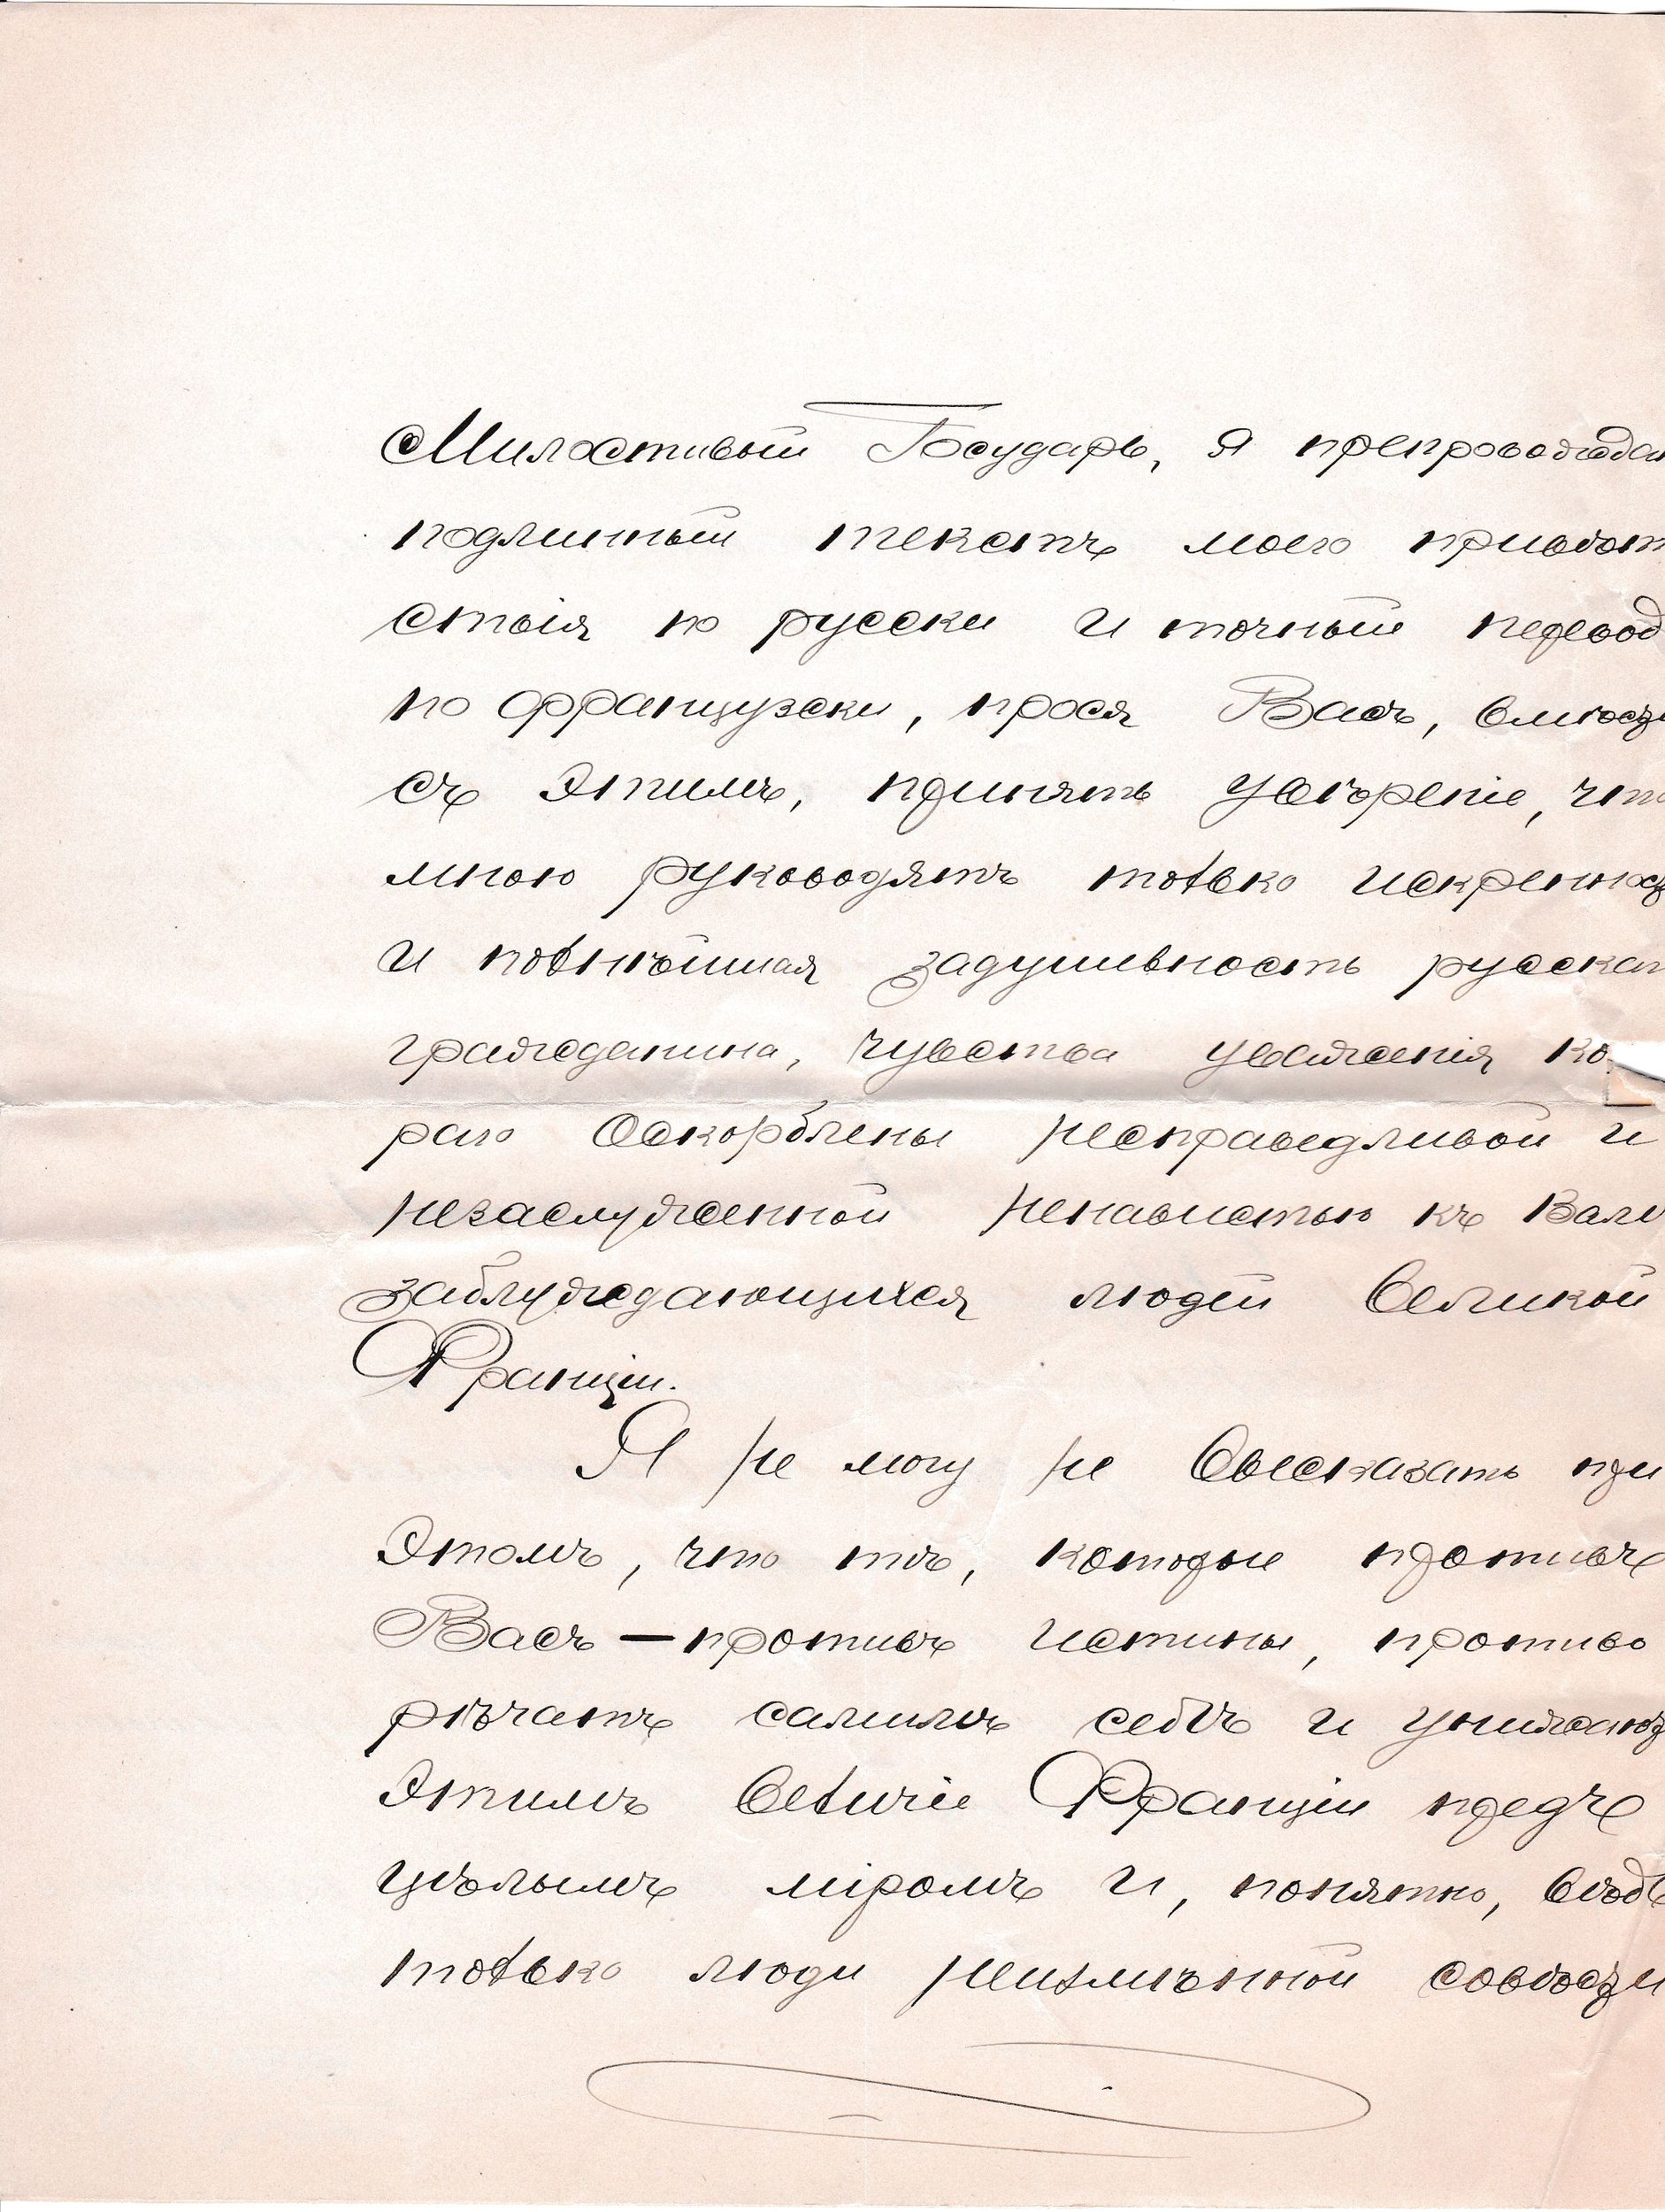 Милостивый Государь, я препровождаю
подлинный текстъ моего привѣт
ствія по русски и точный перевод
по французски, прося Васъ, вмѣстѣ
съ этимъ, принять увѣреніе, что
мною руководятъ только искренность
и полнѣйшая задушевность русскаг
гражданина, чувства уваженія ко
раго оскорблены несправедливой и
незаслуженной ненавистью къ Вам
заблуждающихся людей великой
Франціи.
Я не могу не высказать при
этомъ, что тѣ, которые противъ
Васъ — противъ истины, противо
рѣчатъ самимъ себѣ и унижают
этимъ величіе Франціи предъ
цѣлымъ міромъ и, понятно,
только люди неизмѣнной совѣсти